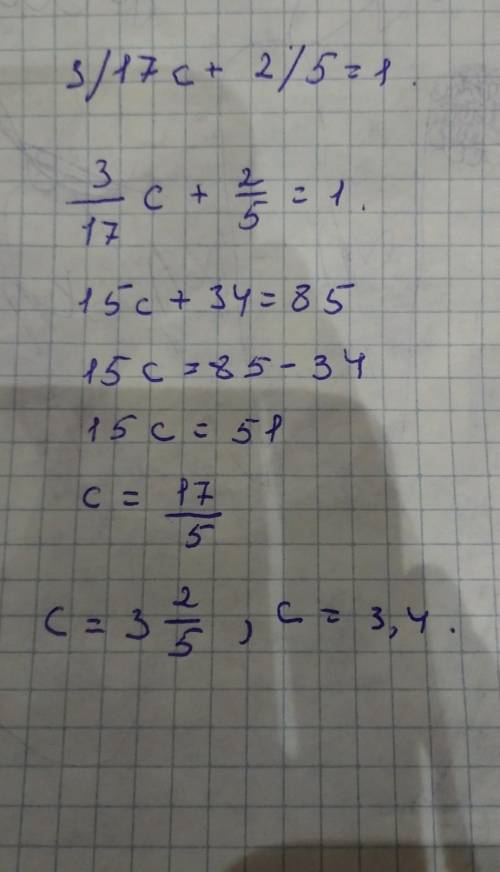 3/17c + 2/5 = 1.
3/17 c + 2/5 = 1.
15c + 34 = 85
15c = 85 - 34
15c = 51
c = 17/5
c = 3 2/5, c = 3,4.